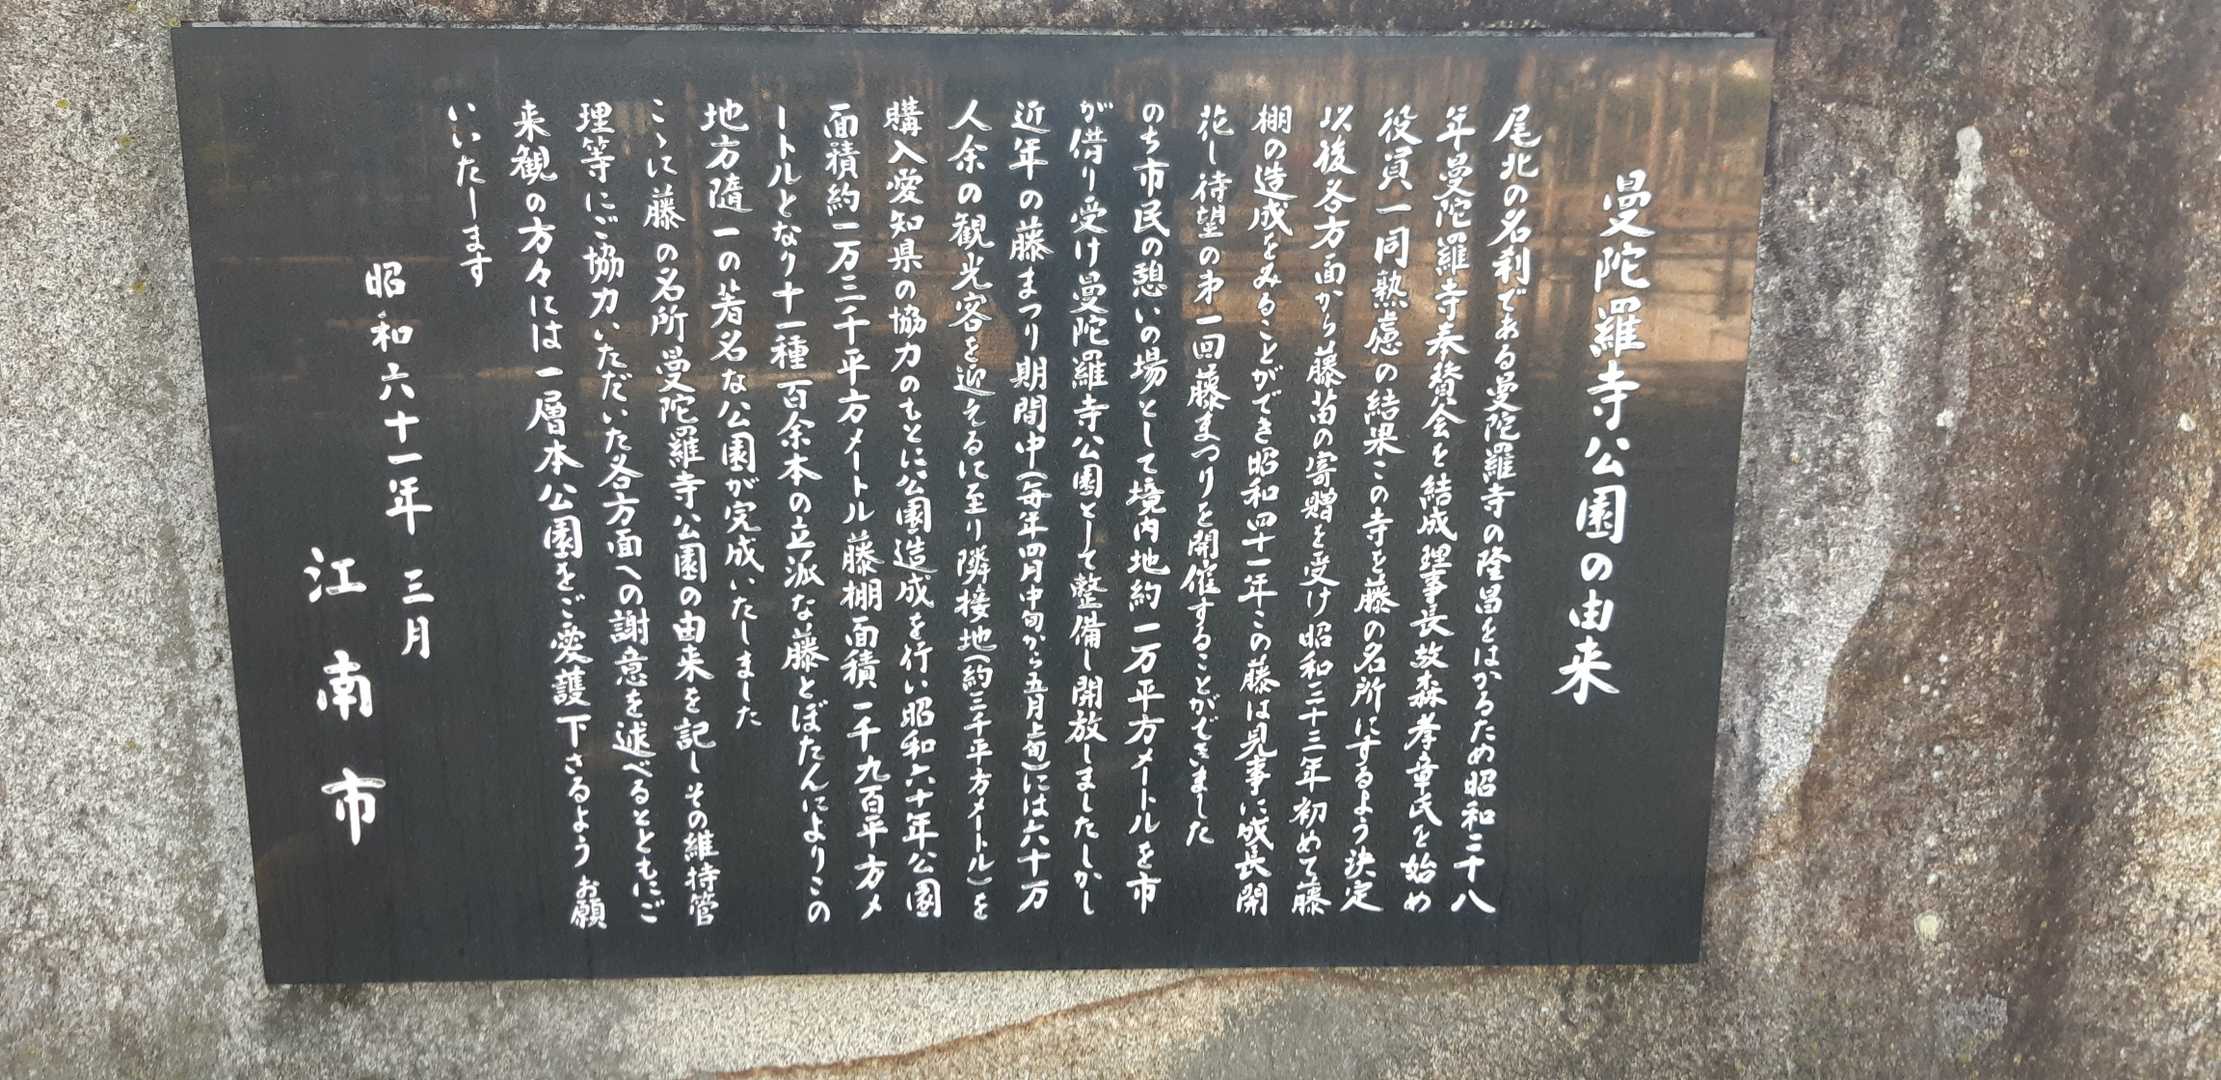 曼陀羅寺公園の由来
尾北の名刹である曼陀羅寺の隆昌をはかるため昭和二十八
年曼陀羅寺奉賛会を結成理事長故森孝章氏を始め
役員一同熟慮の結果この寺を藤の名所にするよう決定
以後各方面から藤苗の寄贈を受け昭和三十三年初めて藤
棚の造成をみることができ昭和四十一年この藤は見事に成長開
花し待望の第一回藤まつりを開催することができました
のち市民の憩いの場として境内地約一万平方メートルを市
が借り受け曼陀羅寺公園として整備し開放しましたしかし
近年の藤まつり期間中(毎年四月中旬から五月上旬)には六十万
人余の観光客を迎えるに至り隣接地(約三千平方メートル)を
購入愛知県の協力のもとに公園造成を行い昭和六十年公園
面積約一万三千平方メートル藤棚面積一千九百平方メ
ートルとなり十一種百余本の立派な藤とぼたんによりこの
地方随一の著名な公園が完成いたしました
こゝに藤の名所曼陀羅寺公園の由来を記しその維持管
理等にご協力いただいた各方面への謝意を述べるとともにご
来観の方々には一層本公園をご愛護下さるようお願
いいたします
昭和六十一年三月
江南市